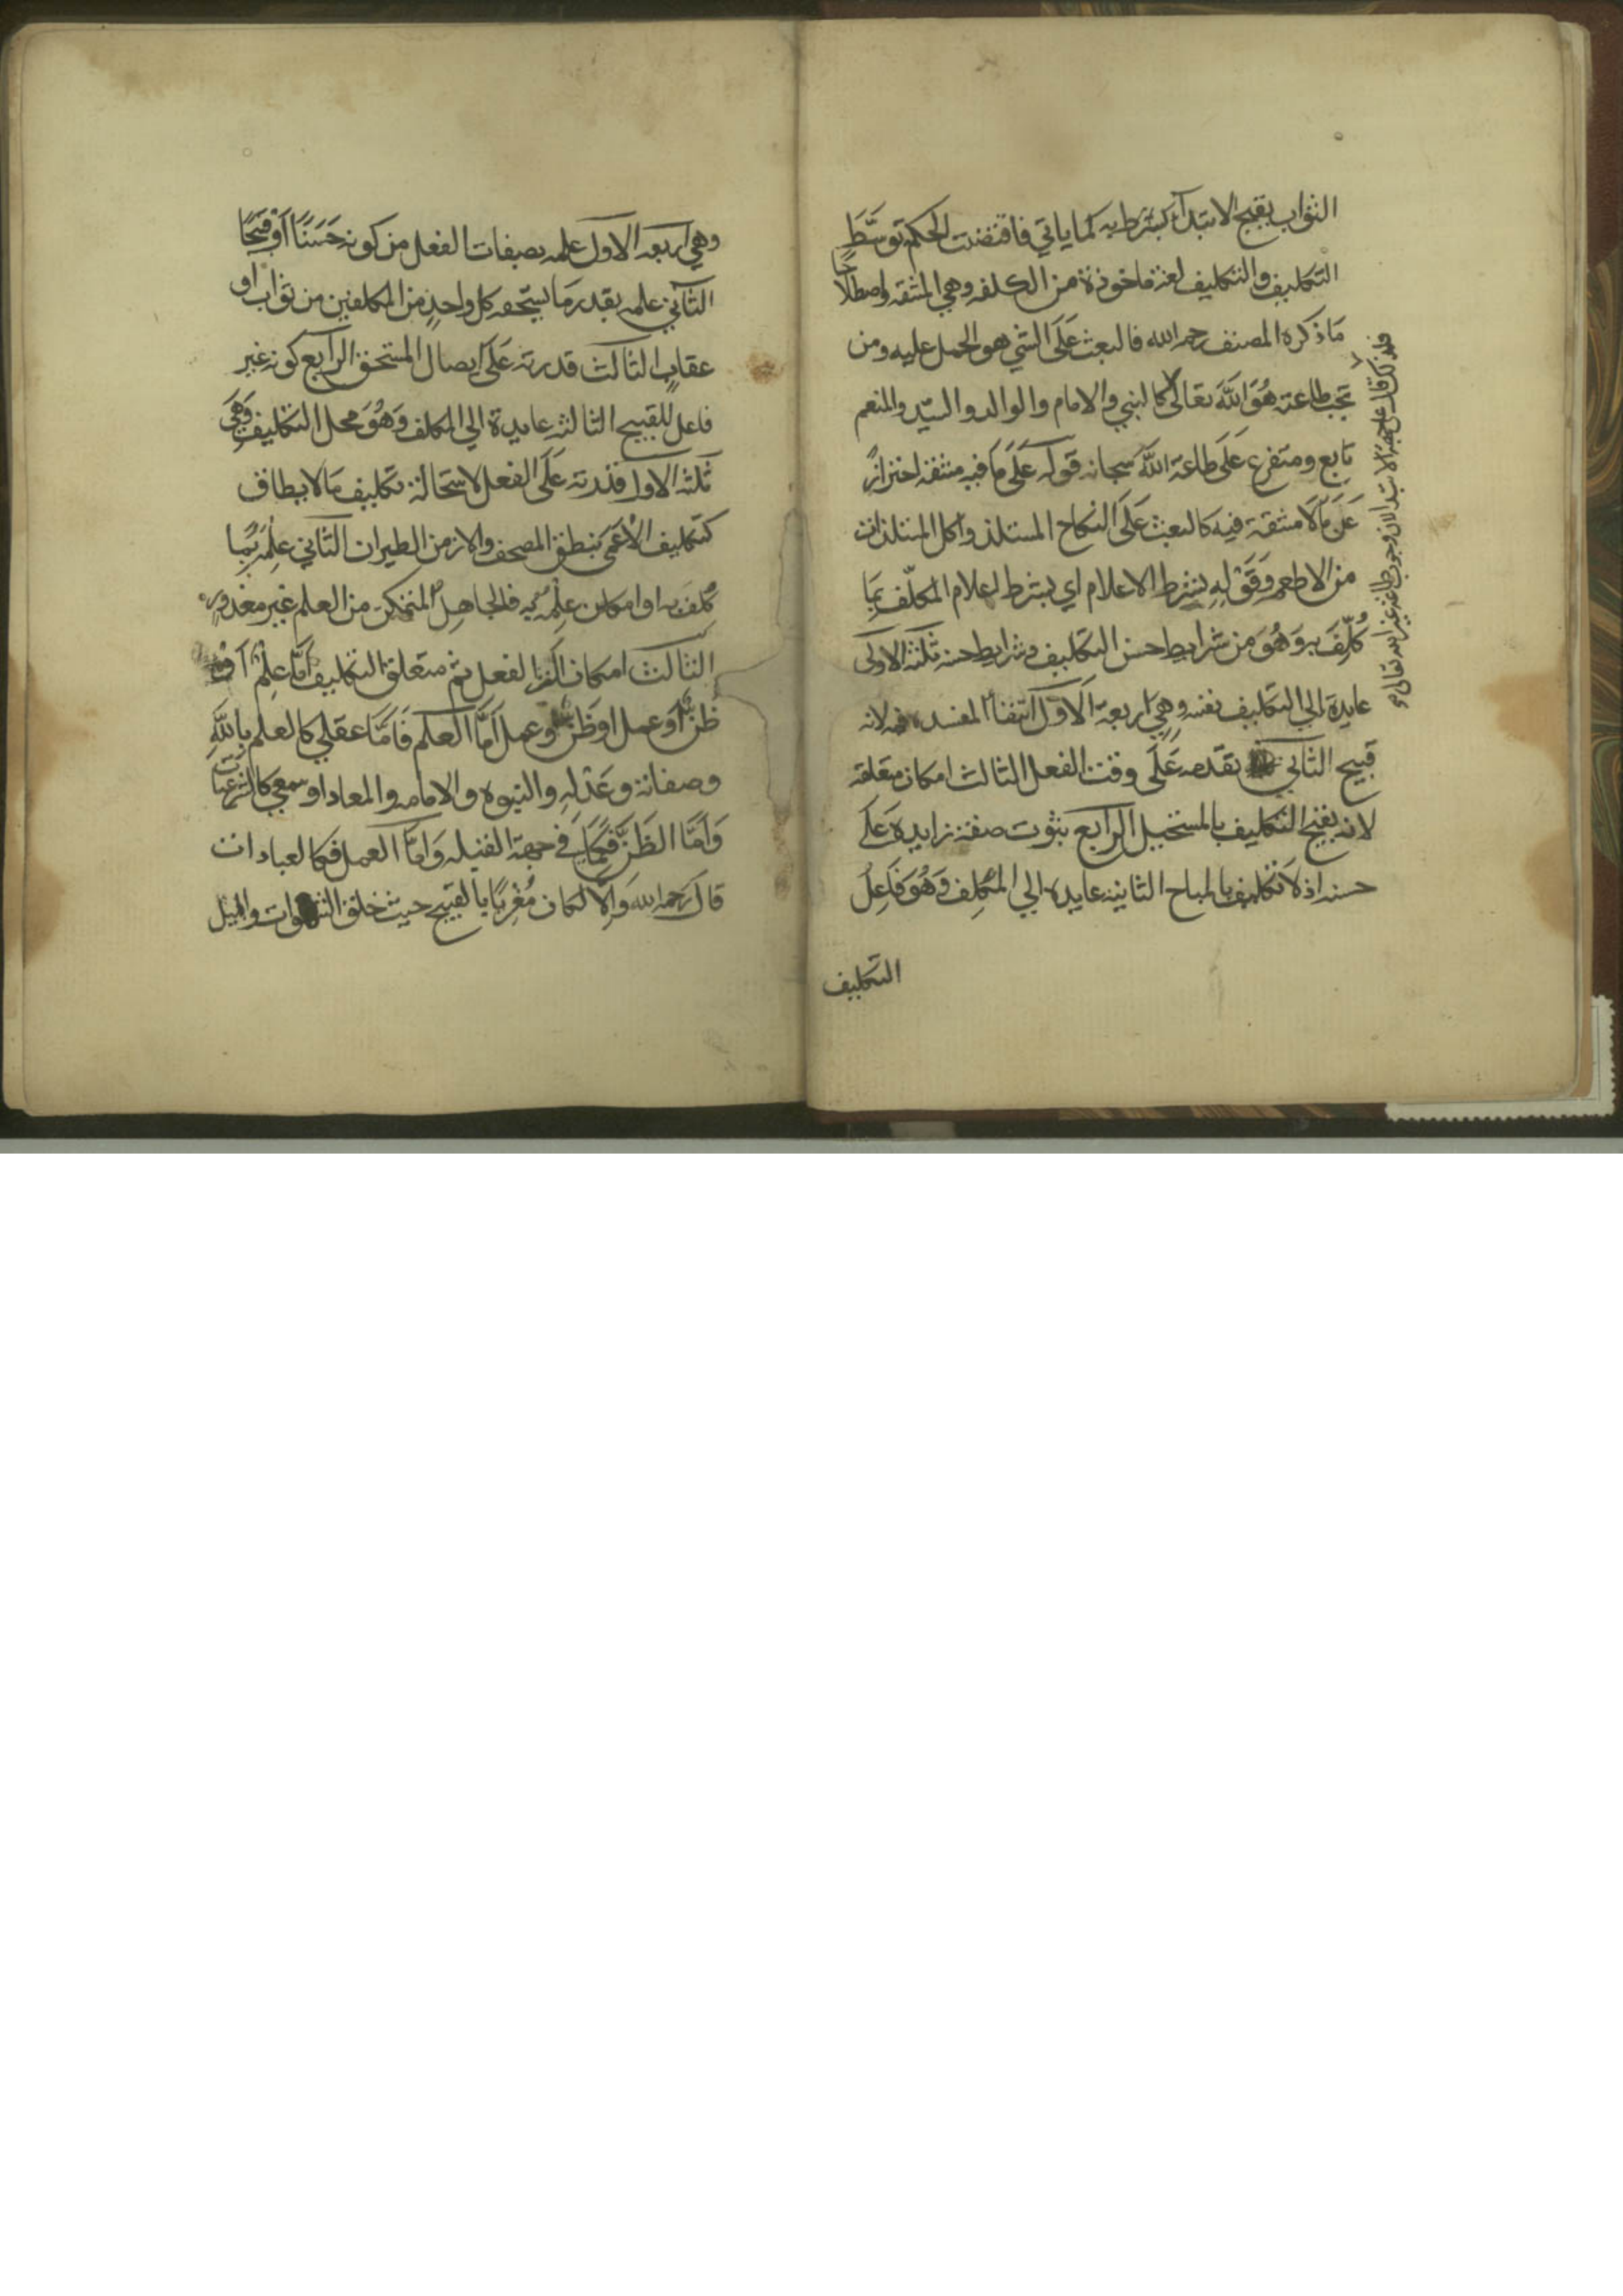 الثواب يقبح الابتداء كبشرط به كما ياتي فاقتضت الحكمة توسّط
التكليف والتكليف لغة ماخوذة من الكلفه وهي المشقه واصطلاحا
ما ذكره المصنف رحمه الله فالبعث على الشي هو الحمل عليه ومن
تجب طاعته هو الله تعالى كالنبي والامام والوالد والسيّد والمنعم
تابع ومتفرع على طاعة الله سبحانه قوله على ما فيه مشقه احترازً
عن ما لا مشقة فيه كالبعث على النكاح المستلذ واكل المستلذات
من الاطعمه وقوله بشرط الاعلام اي بشرط اعلام المكلّف بما
كُلّفَ به وهو من شرايط حسن التكليف وشرايط حسنه ثلثة الاولى
عايدة الي التكليف نفسه وهي اربعة الاول انتفأ المفسده فيه لانه
قبيح الثاني تقدمه على وقت الفعل الثالث امكان متعلقه
لانه يقبح التكليف بالمستحيل الرابع ثبوت صفة زايدة على
حسنه اذ لا تكليف بالمباح الثانية عايده الي المكلِف وهو فاعل
التكليف
فلذلك قال على جهة الابتدا لان وجوب طاعة غير الله تعالى
وهي اربعه الاول علمه بصفات الفعل من كونه حَسَنًا او قبيحًا
الثاني علمه بقدر ما يستحقه كل واحدٍ من المكلفين من ثواب او
عقاب الثالث قدرته على ايصال المستحق الرابع كونه غير
فاعل للقبيح الثالثه عايدة الي المكلف وهو محل التكليف وهي
ثلثه الاول قدرته على الفعل لاستحالة تكليف مالايطاق
كتكليف الاعمى بنقط المصحف والازمن الطيران الثاني علمه بما
كلف به او امكان علمه به فالجاهل المتمكن من العلم غير معذور
الثالث امكان آلة الفعل ثم متعلق التكليف اما علم او
ظن او عمل اما العلم فامّا عقلي كالعلم بالله
وصفاته وعدله والنبوه والامامه والمعاد او سمعي كالشرعيات
وامّا الظن فكما في جهة القبله وامّا العمل فكالعبادات
قال رحمه الله والّا لكان مُغْرِيًا بالقبيح حيث خلق الشهوات والميل